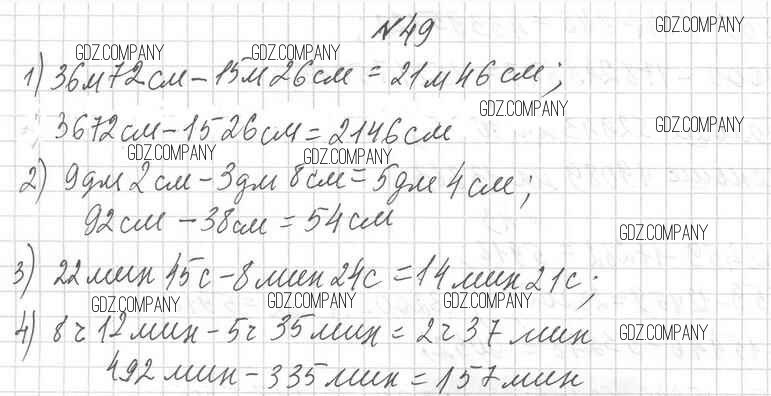 №49
GDZ.COMPANY
GDZ.COMPANY GDZ.COMPANY
1) 36м72см – 15м26см = 21м46см;
GDZ.COMPANY
3672см – 1526см = 2146см
GDZ.COMPANY
GDZ.COMPANY GDZ.COMPANY
2) 9дм2см – 3дм8см = 5дм4см;
92см – 38см = 54см
GDZ.COMPANY
3) 22мин45с – 8мин24с = 14мин21с;
GDZ.COMPANY GDZ.COMPANY GDZ.COMPANY
4) 8ч12мин – 5ч35мин = 2ч37мин
GDZ.COMPANY
492мин – 335мин = 157мин